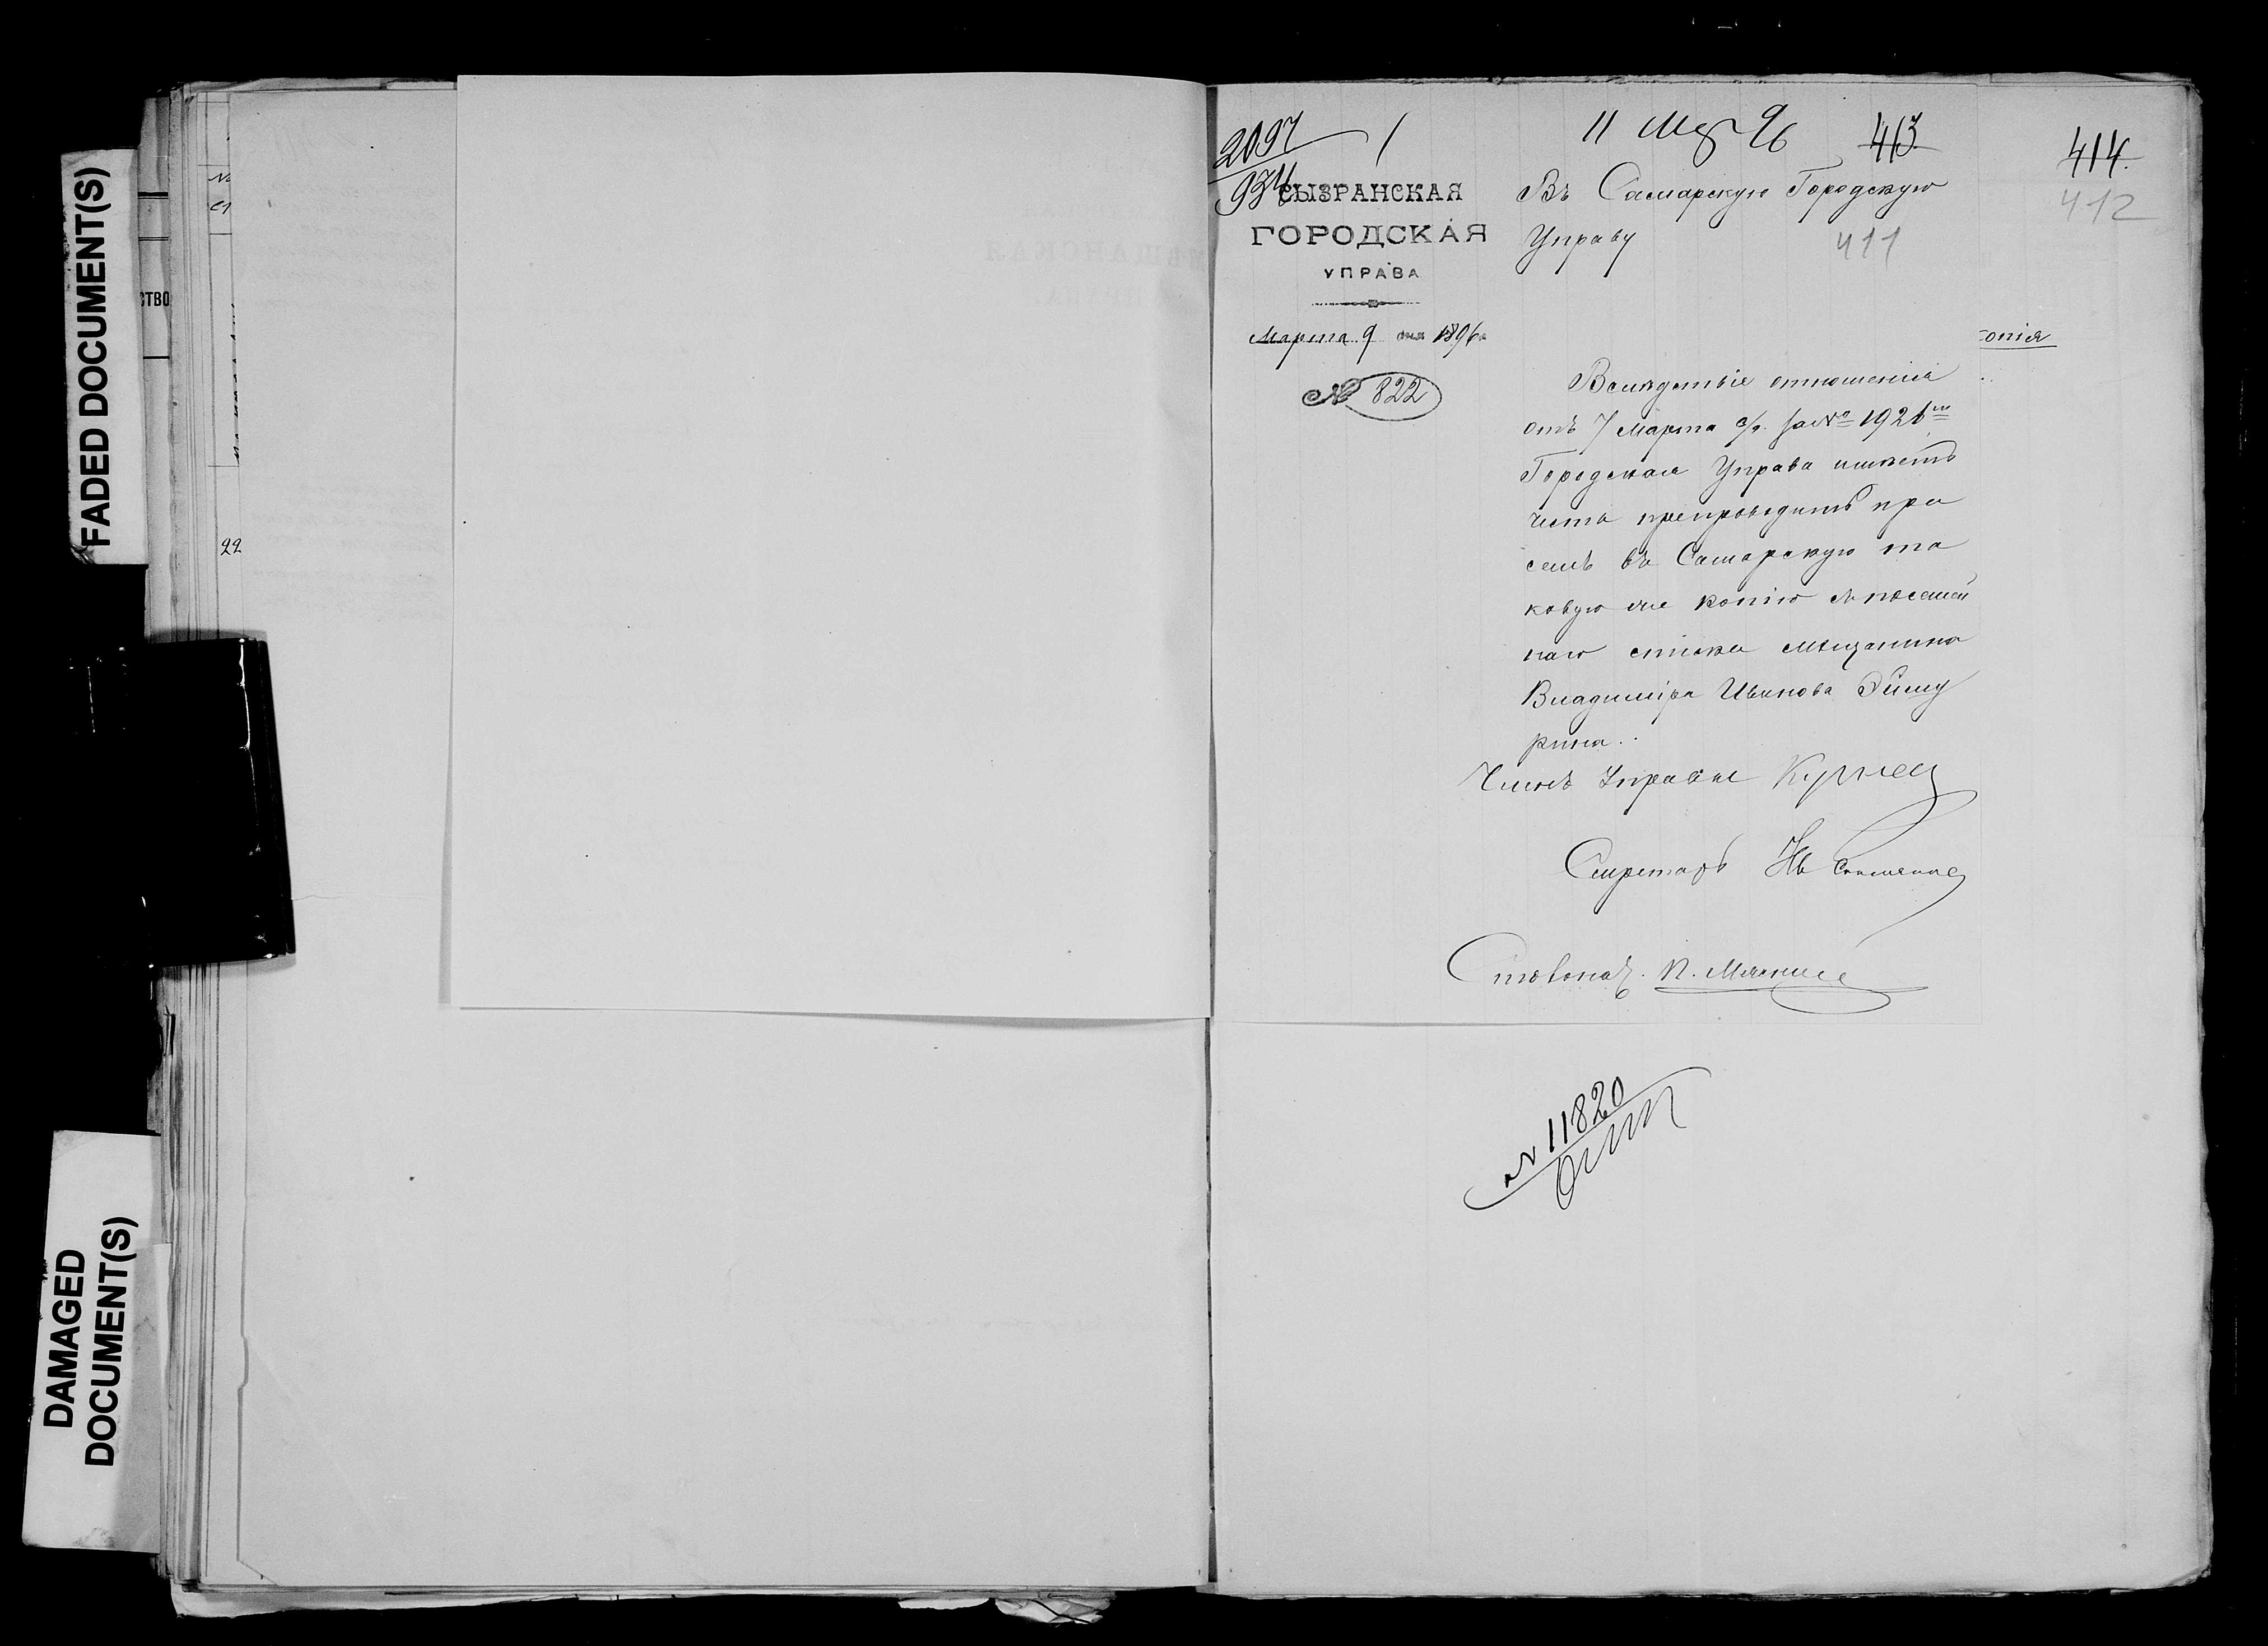 FADED DOCUMENT(S)
DAMAGED
DOCUMENT(S)
СТВО
22
2097
934
11 Мар 96
413
414
412
411
СЫЗРАНСКАЯ
ГОРОДСКАЯ
УПРАВА
Марта 9 дня 1896 г.
№ 822
Въ Самарскую Городскую
Управу
опія
Вслѣдствіе отношенія
отъ 7 Марта с/г. за № 1921
Городская Управа имѣетъ
честь препроводить при
семъ въ Самарскую та
ковую же копію съ посемей
наго списка мѣщанина
Владиміра Иванова
рина.
Членъ Управы
Секретарь
Столонач.
№ 11820